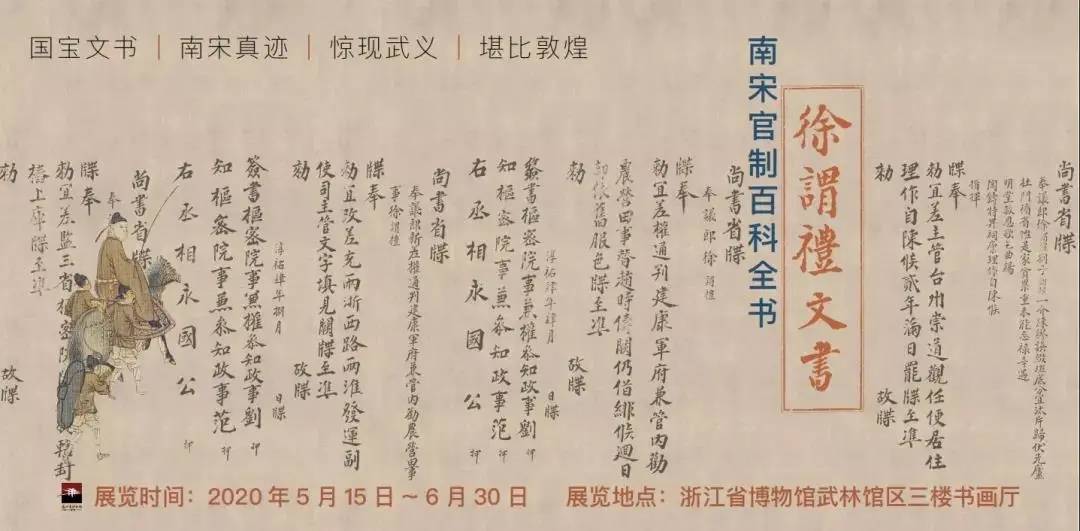 国宝文书 | 南宋真迹 | 惊现武义 | 堪比敦煌
南宋官制百科全书
徐謂禮文書
尚書省牒
指揮
牒奉
勑宜差主管台州崇道觀任便居住
理作自陳候貳年滿日罷牒至準
勑
故牒
尚書省牒
奉議郎徐謂禮
牒奉
勑宜差權通判建康軍府兼管內勸
農營田事替趙時僙闕仍借緋候週日
却依舊服色牒至準
勑
故牒
淳祐肆年肆月 日牒
簽書樞密院事兼權參知政事劉
知樞密院事兼參知政事范 押
右丞相永國公 押
尚書省牒
奉議郎新差權通判建康軍府兼管內勸農營田
事徐謂禮
牒奉
勑宜改差充兩浙西路兩淮發運副
使司主管文字填見闕牒至準
勑
故牒
淳祐肆年捌月 日牒
簽書樞密院事兼權參知政事劉
知樞密院事兼參知政事范 押
右丞相永國公 押
尚書省牒
奉
牒奉
勑宜差監三省樞密院
樁上庫牒至準
勑
故牒
展览时间：2020年5月15日～6月30日
展览地点：浙江省博物馆武林馆区三楼书画厅